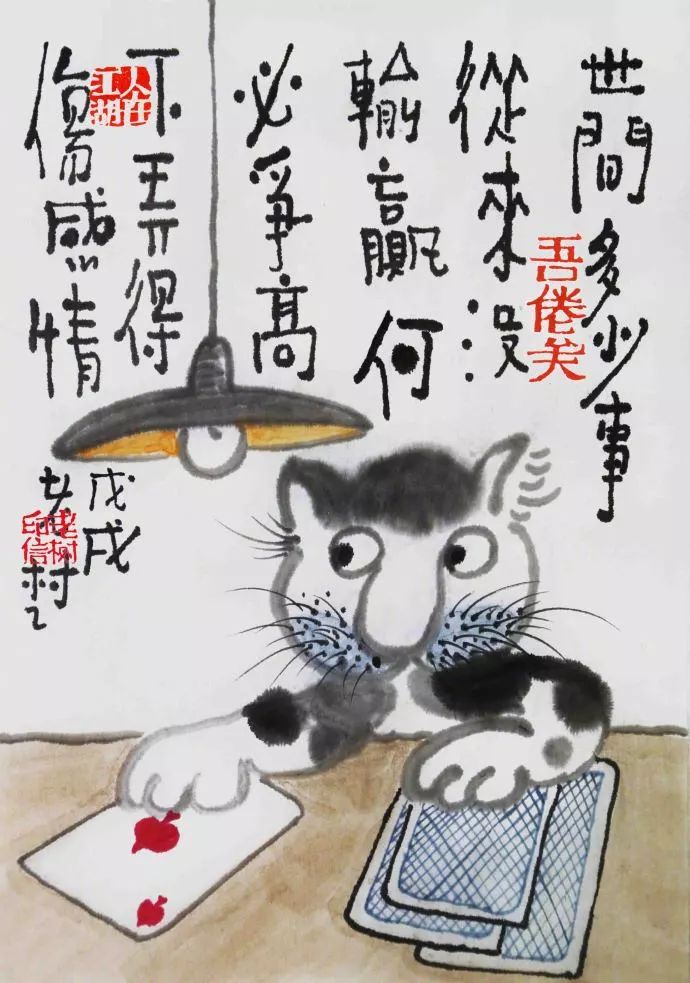 世間多少事
從來没
輸贏何
必爭高
下弄得
傷感情
戊戌
吾倦关
人在江湖
老樹印信